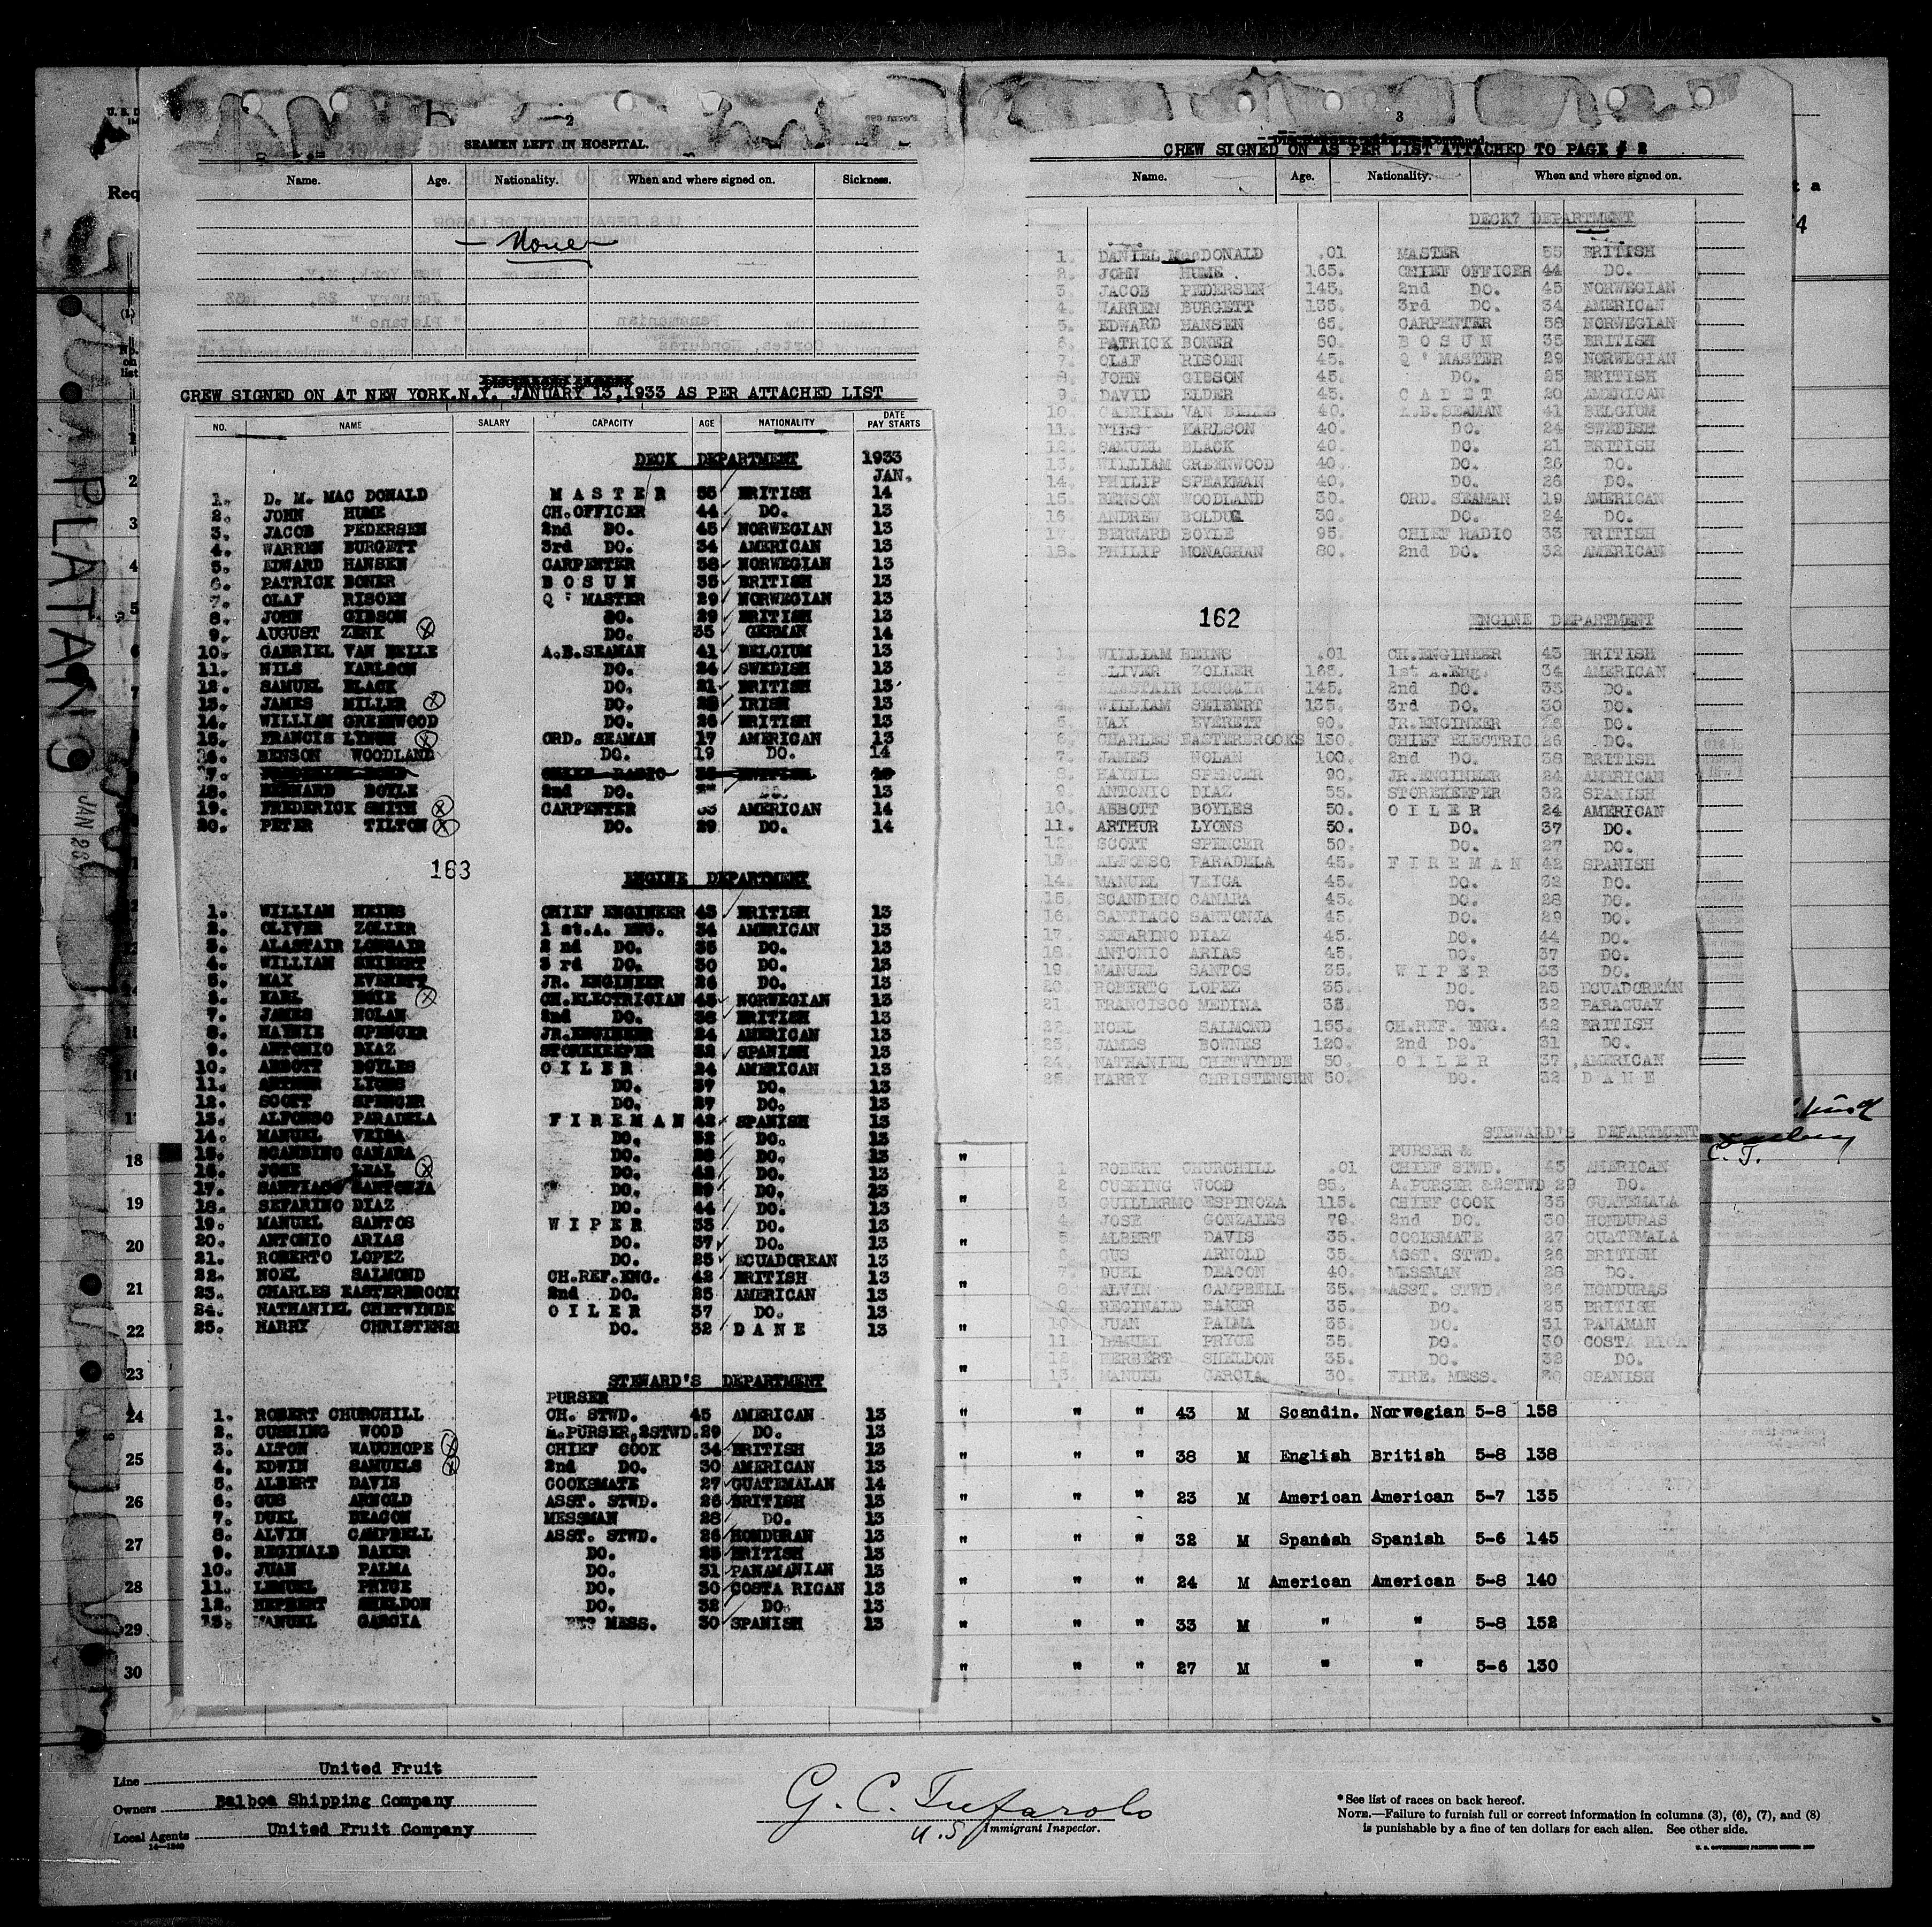 2
SEAMEN LEFT IN HOSPITAL.
Name. Age. Nationality. When and where signed on. Sickness.
— None —
CREW SIGNED ON AT NEW YORK.N.Y. JANUARY 13,1933 AS PER ATTACHED LIST
NO. NAME SALARY CAPACITY AGE NATIONALITY DATE PAY STARTS
DECK DEPARTMENT 1933
JAN.
1. D. M. MAC DONALD M A S T E R 55 BRITISH 14
2. JOHN HUME CH.OFFICER 44 DO. 13
3. JACOB PEDERSEN 2nd DO. 45 NORWEGIAN 13
4. WARREN BURGETT 3rd DO. 34 AMERICAN 13
5. EDWARD HANSEN CARPENTER 58 NORWEGIAN 13
6. PATRICK BONER B O S U N 35 BRITISH 13
7. OLAF RISOEN Q ' MASTER 29 NORWEGIAN 13
8. JOHN GIBSON DO. 29 BRITISH 13
9. AUGUST ZENK DO. 35 GERMAN 14
10. GABRIEL VAN BELLE A.B.SEAMAN 41 BELGIUM 13
11. NILS KARLSON DO. 24 SWEDISH 13
12. SAMUEL BLACK DO. 21 BRITISH 13
13. JAMES MILLER DO. 28 IRISH 13
14. WILLIAM GREENWOOD DO. 26 BRITISH 13
15. FRANCIS LYNCH ORD. SEAMAN 17 AMERICAN 13
16. BENSON WOODLAND DO. 19 DO. 14
17. CHIEF RADIO BRITISH
18. BERNARD BOYLE 2nd DO. DO. 13
19. FREDERICK SMITH CARPENTER 53 AMERICAN 14
20. PETER TILTON DO. 29 DO. 14
163
ENGINE DEPARTMENT
1. WILLIAM HEINS CHIEF ENGINEER 43 BRITISH 13
2. OLIVER ZOLLER 1 st.A. ENG. 34 AMERICAN 13
3. ALASTAIR LONGAIR 2 nd DO. 35 DO. 13
4. WILLIAM SEIBERT 3 rd DO. 30 DO. 13
5. MAX EVERETT JR. ENGINEER 26 DO. 13
6. KARL CH.ELECTRICIAN 45 NORWEGIAN 13
7. JAMES NOLAN 2nd DO. 38 BRITISH 13
8. HAYNIE SPENCER JR.ENGINEER 24 AMERICAN 13
9. ANTONIO DIAZ STOREKEEPER 32 SPANISH 13
10. ABBOTT BOYLES O I L E R 24 AMERICAN 13
11. ARTHUR LYONS DO. 37 DO. 13
12. SCOTT SPENCER DO. 27 DO. 13
13. ALFONSO PARADELA F I R E M A N 42 SPANISH 13
14. MANUEL VEIGA DO. 32 DO. 13
15. SCANDINO CAMARA DO. 28 DO. 13
16. JOSE LEAL DO. 42 DO. 13
17. SANTIAGO SANTONJA DO. 29 DO. 13
18. SEFARINO DIAZ DO. 44 DO. 13
19. MANUEL SANTOS W I P E R 33 DO. 13
20. ANTONIO ARIAS DO. 37 DO. 13
21. ROBERTO LOPEZ DO. 25 ECUADOREAN 13
22. NOEL SALMOND CH.REF.ENG. 42 BRITISH 13
23. CHARLES EASTERBROOK 2nd DO. 25 AMERICAN 13
24. NATHANIEL CHETWYNDE O I L E R 37 DO. 13
25. HARRY CHRISTENS DO. 32 D A N E 13
STEWARD'S DEPARTMENT
PURSER
1. ROBERT CHURCHILL CH. STWD. 45 AMERICAN 13
2. CUSHING WOOD A.PURSER,2STWD.29 DO. 13
3. ALTON WAUCHOPE CHIEF COOK 34 BRITISH 13
4. EDWIN SAMUELS 2nd DO. 30 AMERICAN 13
5. ALBERT DAVIS COOKSMATE 27 GUATEMALAN 14
6. GUS ARNOLD ASST. STWD. 26 BRITISH 13
7. DUEL DEACON MESSMAN 28 DO. 13
8. ALVIN CAMPBELL ASST. STWD. 26 HONDURAN 13
9. REGINALD BAKER DO. 25 BRITISH 13
10. JUAN PALMA DO. 31 PANAMANIAN 13
11. LEMUEL PRYCE DO. 30 COSTA RICAN 13
12. HERBERT SHELDON DO. 32 DO. 13
13. MANUEL GARCIA MESS. 30 SPANISH 13
3
CREW SIGNED ON AS PER LIST ATTACHED TO PAGE # 2
Name. Age. Nationality. When and where signed on.
DECK? DEPARTMENT
1. DANIEL MacDONALD .01 MASTER 55 BRITISH
2. JOHN HUME 165. CHIEF OFFICER 44 DO.
3. JACOB PEDERSEN 145. 2nd DO. 45 NORWEGIAN
4. WARREN BURGETT 135. 3rd DO. 34 AMERICAN
5. EDWARD HANSEN 65. CARPENTER 58 NORWEGIAN
6. PATRICK BONER 50. B O S U N 35 BRITISH
7. OLAF RISOEN 45. Q ' MASTER 29 NORWEGIAN
8. JOHN GIBSON 45. DO. 25 BRITISH
9. DAVID ELDER 45. C A D E T 20 AMERICAN
10. GABRIEL VAN BELLE 40. A.B.SEAMAN 41 BELGIUM
11. NILS KARLSON 40. DO. 24 SWEDISH
12. SAMUEL BLACK 40. DO. 21 BRITISH
13. WILLIAM GREENWOOD 40. DO. 26 DO.
14. PHILIP SPEAKMAN 40. DO. 26 DO.
15. BENSON WOODLAND 30. ORD. SEAMAN 19 AMERICAN
16. ANDREW BOLDUG 30. DO. 24 DO.
17. BERNARD BOYLE 95. CHIEF RADIO 33 BRITISH
18. PHILIP MONAGHAN 80. 2nd DO. 32 AMERICAN
162
ENGINE DEPARTMENT
1. WILLIAM HEINS .01 CH.ENGINEER 43 BRITISH
2. OLIVER ZOLLER 165. 1st A.Eng. 34 AMERICAN
ALASTAIR LONGAIR 145. 2nd DO. 35 DO.
4. WILLIAM SEIBERT 135. 3rd DO. 30 DO.
5. MAX EVERETT 90. JR.ENGINEER 26 DO.
6. CHARLES EASTERBROOKS 130. CHIEF ELECTRIC. 26 DO.
7. JAMES NOLAN 100. 2nd DO. 38 BRITISH
8. HAYNIE SPENCER 90. JR.ENGINEER 24 AMERICAN
9. ANTONIO DIAZ 55. STOREKEEPER 32 SPANISH
10. ABBOTT BOYLES 50. O I L E R 24 AMERICAN
11. ARTHUR LYONS 50. DO. 37 DO.
12. SCOTT SPENCER 50. DO. 27 DO.
13. ALFONSO PARADELA 45. F I R E M A N 42 SPANISH
14. MANUEL VEIGA 45. DO. 32 DO.
15. SCANDINO CAMARA 45. DO. 28 DO.
16. SANTIAGO SANTONJA 45. DO. 29 DO.
17. SEFARINO DIAZ 45. DO. 44 DO.
18. ANTONIO ARIAS 45. DO. 37 DO.
19. MANUEL SANTOS 35. W I P E R 33 DO.
20. ROBERTO LOPEZ 35. DO. 25 ECUADOREAN
21. FRANCISCO MEDINA 35. DO. 32 PARAGUAY
22. NOEL SALMOND 155. CH.REF. ENG. 42 BRITISH
23. JAMES BOWNES 120. 2nd DO. 31 DO.
24. NATHANIEL CHETWYNDE 50. O I L E R 37 AMERICAN
25. HARRY CHRISTENSEN 50. DO. 32 D A N E
STEWARD'S DEPARTMENT
PURSER &
1. ROBERT CHURCHILL .01 CHIEF STWD. 45 AMERICAN
2. CUSHING WOOD 85. A.PURSER &2STWD 29 DO.
3. GUILLERMO ESPINOZA 115. CHIEF COOK 35 GUATEMALA
4. JOSE GONZALES 79. 2nd DO. 30 HONDURAS
5. ALBERT DAVIS 35. COOKSMATE 27 GUATEMALA
6. GUS ARNOLD 35. ASST. STWD. 26 BRITISH
7. DUEL DEACON 40. MESSMAN 28 DO.
8. ALVIN CAMPBELL 35. ASST. STWD. 26 HONDURAS
9. REGINALD BAKER 35. DO. 25 BRITISH
10. JUAN PALMA 35. DO. 31 PANAMAN
11. LEMUEL PRYCE 35. DO. 30 COSTA RICA
12. HERBERT SHELDON 35. DO. 32 DO.
13. MANUEL GARCIA 30. FIRE. MESS. 30 SPANISH
PLATANO
JAN 28
18 "
19 "
20 "
21 "
22 "
23 "
24 " " " 43 M Scandin. Norwegian 5-8 158
25 " " " 38 M English British 5-8 138
26 " " " 23 M American American 5-7 135
27 " " " 32 M Spanish Spanish 5-6 145
28 " " " 24 M American American 5-8 140
29 " " " 33 M " " 5-8 152
30 " " " 27 M " " 5-6 130
Line United Fruit
Owners Balboa Shipping Company
Local Agents United Fruit Company
14—1240
G. C. Tufarolo
U.S. Immigrant Inspector.
*See list of races on back hereof.
NOTE.—Failure to furnish full or correct information in columns (3), (6), (7), and (8)
is punishable by a fine of ten dollars for each alien. See other side.
U. S. GOVERNMENT PRINTING OFFICE